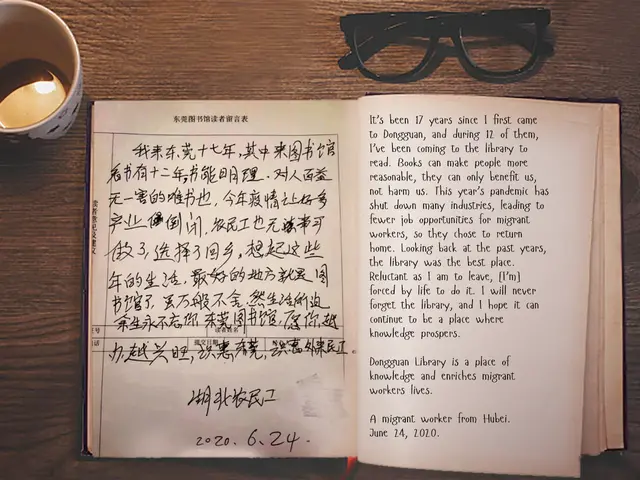 东莞图书馆读者留言表
我来东莞十七年,其中来图书馆
看书有十二年,书能明理,对人百益
无一害的唯书也,今年疫情让好多
产业倒闭,农民工也无事可
做了,选择了回乡,想起这些
年的生活,最好的地方就是图
书馆了,虽万般不舍,然生活所迫
余生永不忘你,东莞图书馆,愿你越
办越兴旺,识惠东莞,识惠外来民工
湖北农民工
2020.6.24.
读者意见及建议
号
读者姓名
话
提交日期
It's been 17 years since I first came
to Dongguan, and during 12 of them,
I've been coming to the library to
read. Books can make people more
reasonable, they can only benefit us,
not harm us. This year's pandemic has
shut down many industries, leading to
fewer job opportunities for migrant
workers, so they chose to return
home. Looking back at the past years,
the library was the best place.
Reluctant as I am to leave, [I'm]
forced by life to do it. I will never
forget the library, and I hope it can
continue to be a place where
knowledge prospers.
Dongguan Library is a place of
knowledge and enriches migrant
workers lives.
A migrant worker from Hubei.
June 24, 2020.